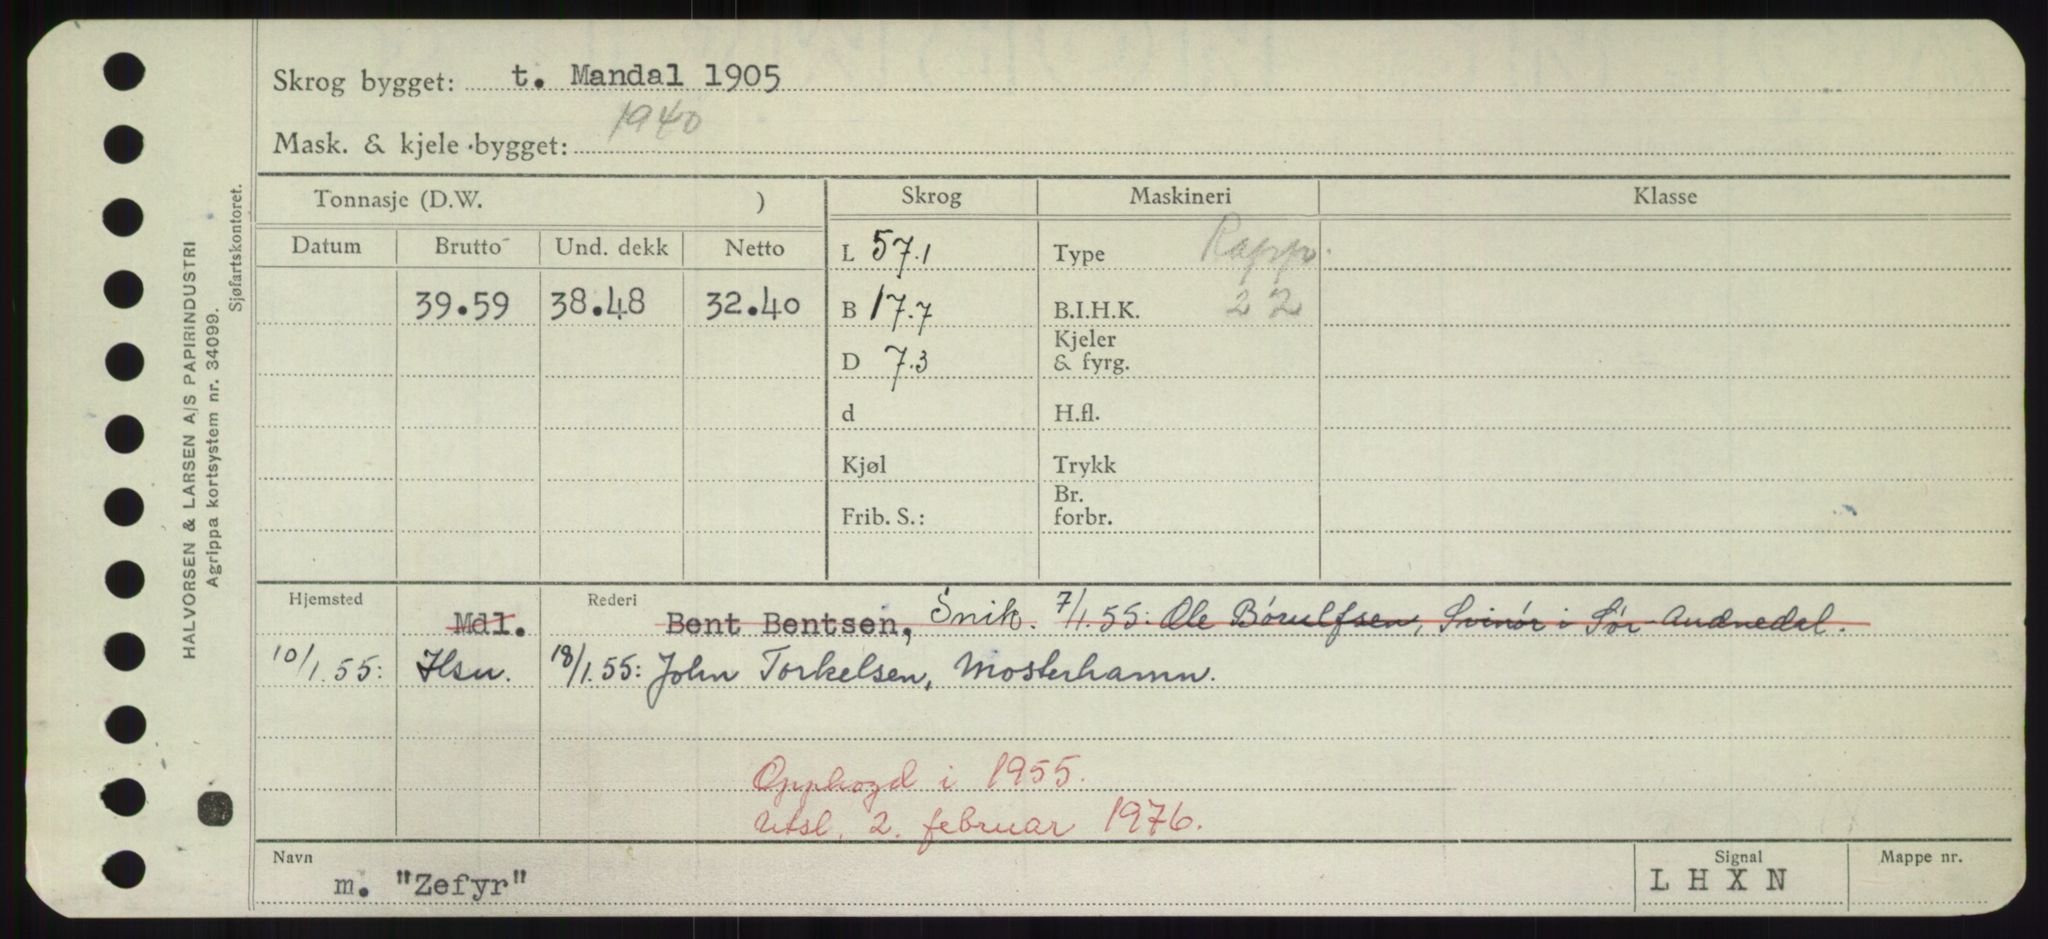 Skrog bygget: t. Mandal 1905
Mask. & kjele bygget: 1940
Tonnasje (D.W. )
Skrog
Maskineri
Klasse
Datum
Brutto
Und. dekk
Netto
39.59
38.48
32.40
L 57.1
B 17.7
D 7.3
d
Kjøl
Frib. S.:
Type Rapp.
B.I.H.K. 22
Kjeler
& fyrg.
H.fl.
Trykk
Br.
forbr.
Hjemsted
Rederi
Mdl. Bent Bentsen, Snik. 7/1.55: Ole Børulfsen, Svinør i Sør-Audnedal.
10/1.55: Hsu. 18/1.55: John Torkelsen, Mosterhamn.
Opphogd i 1955.
Utsl. 2. februar 1976.
Navn
m. "Zefyr"
Signal
L H X N
Mappe nr.
HALVORSEN & LARSEN A/S PAPIRINDUSTRI
Agrippa kortsystem nr. 34099.
Sjøfartskontoret.